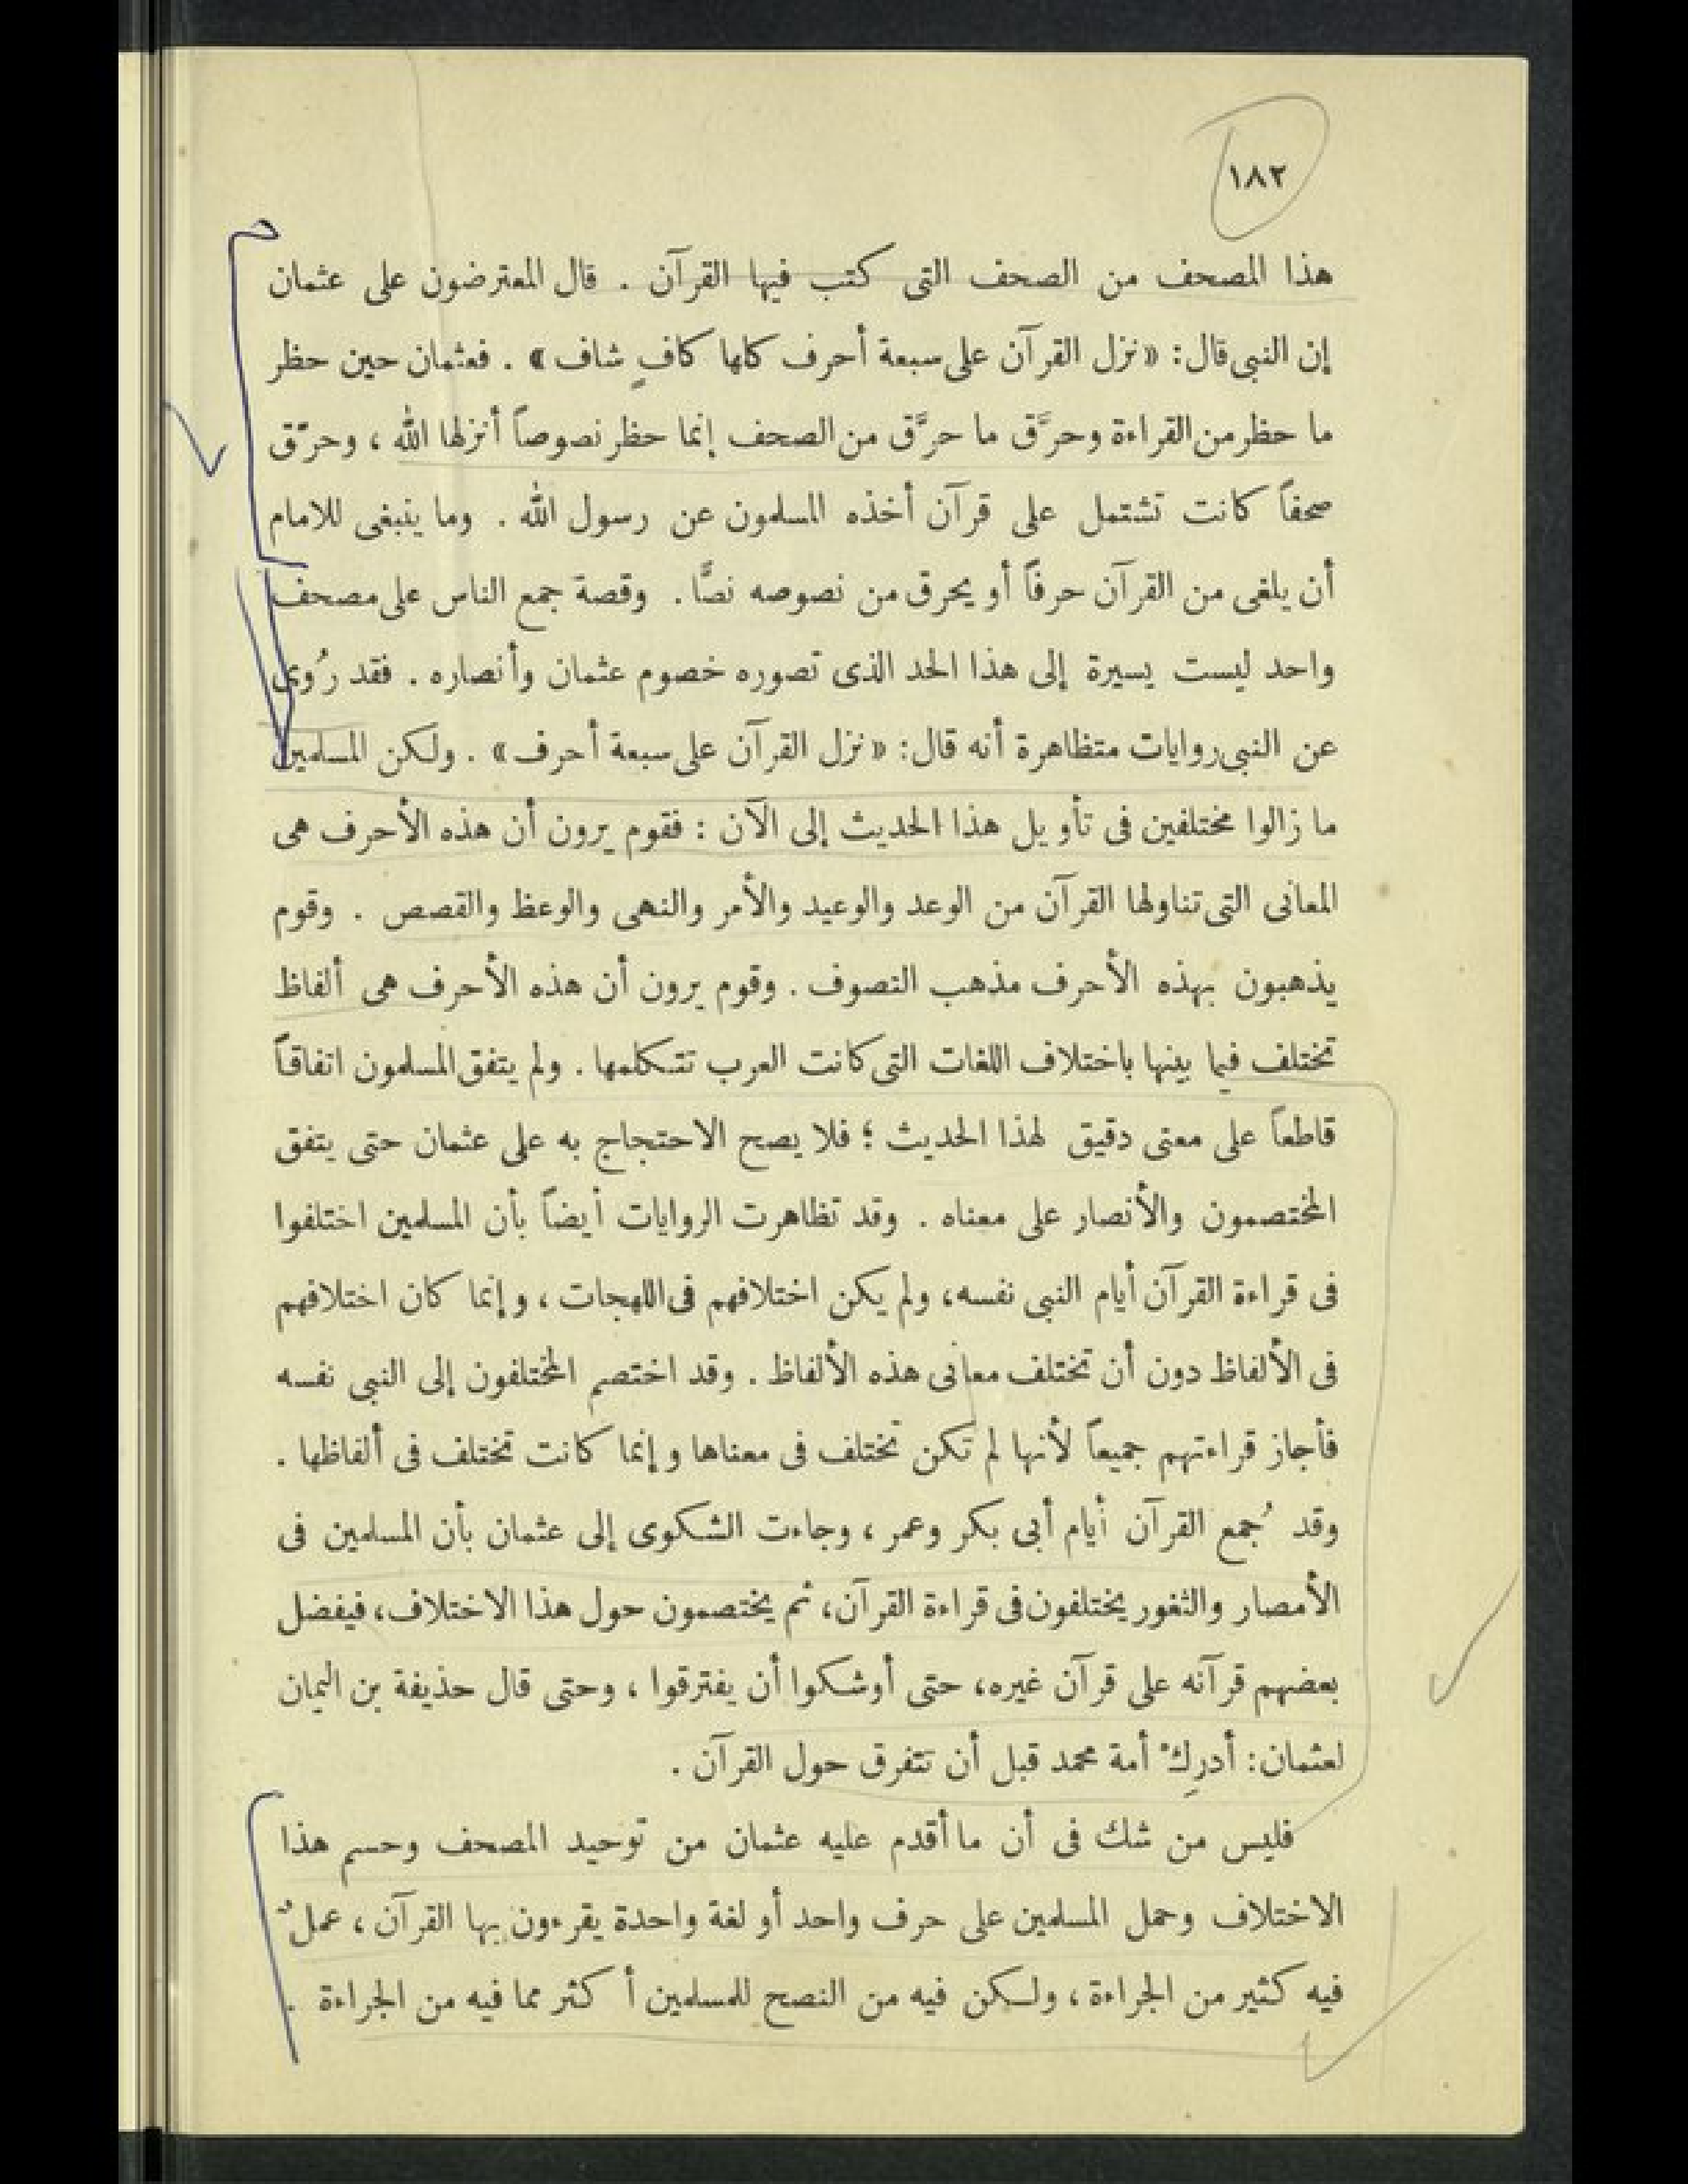 ١٨٢
هذا المصحف من الصحف التى كتب فيها القرآن . قال المعترضون على عثمان
إن النبى قال: «نزل القرآن على سبعة أحرف كلها كافٍ شاف» . فعثمان حين حظر
ما حظر من القراءة وحرَّق ما حرَّق من الصحف إنما حظر نصوصاً أنزلها الله ، وحرّق
صحفاً كانت تشتمل على قرآن أخذه المسلمون عن رسول الله . وما ينبغى للامام
أن يلغى من القرآن حرفاً أو يحرق من نصوصه نصًّا . وقصة جمع الناس على مصحف
واحد ليست يسيرة إلى هذا الحد الذى تصوره خصوم عثمان وأنصاره . فقد رُوى
عن النبى روايات متظاهرة أنه قال: «نزل القرآن على سبعة أحرف» . ولكن المسلمين
ما زالوا مختلفين فى تأويل هذا الحديث إلى الآن : فقوم يرون أن هذه الأحرف هى
المعانى التى تناولها القرآن من الوعد والوعيد والأمر والنهى والوعظ والقصص . وقوم
يذهبون بهذه الأحرف مذهب التصوف . وقوم يرون أن هذه الأحرف هى ألفاظ
تختلف فيما بينها باختلاف اللغات التى كانت العرب تتكلمها . ولم يتفق المسلمون اتفاقاً
قاطعاً على معنى دقيق لهذا الحديث ؛ فلا يصح الاحتجاج به على عثمان حتى يتفق
المختصمون والأنصار على معناه . وقد تظاهرت الروايات أيضاً بأن المسلمين اختلفوا
فى قراءة القرآن أيام النبى نفسه، ولم يكن اختلافهم فى اللهجات ، وإنما كان اختلافهم
فى الألفاظ دون أن تختلف معانى هذه الألفاظ . وقد اختصم المختلفون إلى النبى نفسه
فأجاز قراءتهم جميعاً لأنها لم تكن تختلف فى معناها وإنما كانت تختلف فى ألفاظها .
وقد جُمع القرآن أيام أبى بكر وعمر ، وجاءت الشكوى إلى عثمان بأن المسلمين فى
الأمصار والثغور يختلفون فى قراءة القرآن، ثم يختصمون حول هذا الاختلاف، فيفضل
بعضهم قرآنه على قرآن غيره، حتى أوشكوا أن يفترقوا ، وحتى قال حذيفة بن اليمان
لعثمان: أدرِكْ أمة محمد قبل أن تتفرق حول القرآن .
فليس من شك فى أن ما أقدم عليه عثمان من توحيد المصحف وحسم هذا
الاختلاف وحمل المسلمين على حرف واحد أو لغة واحدة يقرءون بها القرآن ، عملٌ
فيه كثير من الجراءة ، ولكن فيه من النصح للمسلمين أكثر مما فيه من الجراءة .